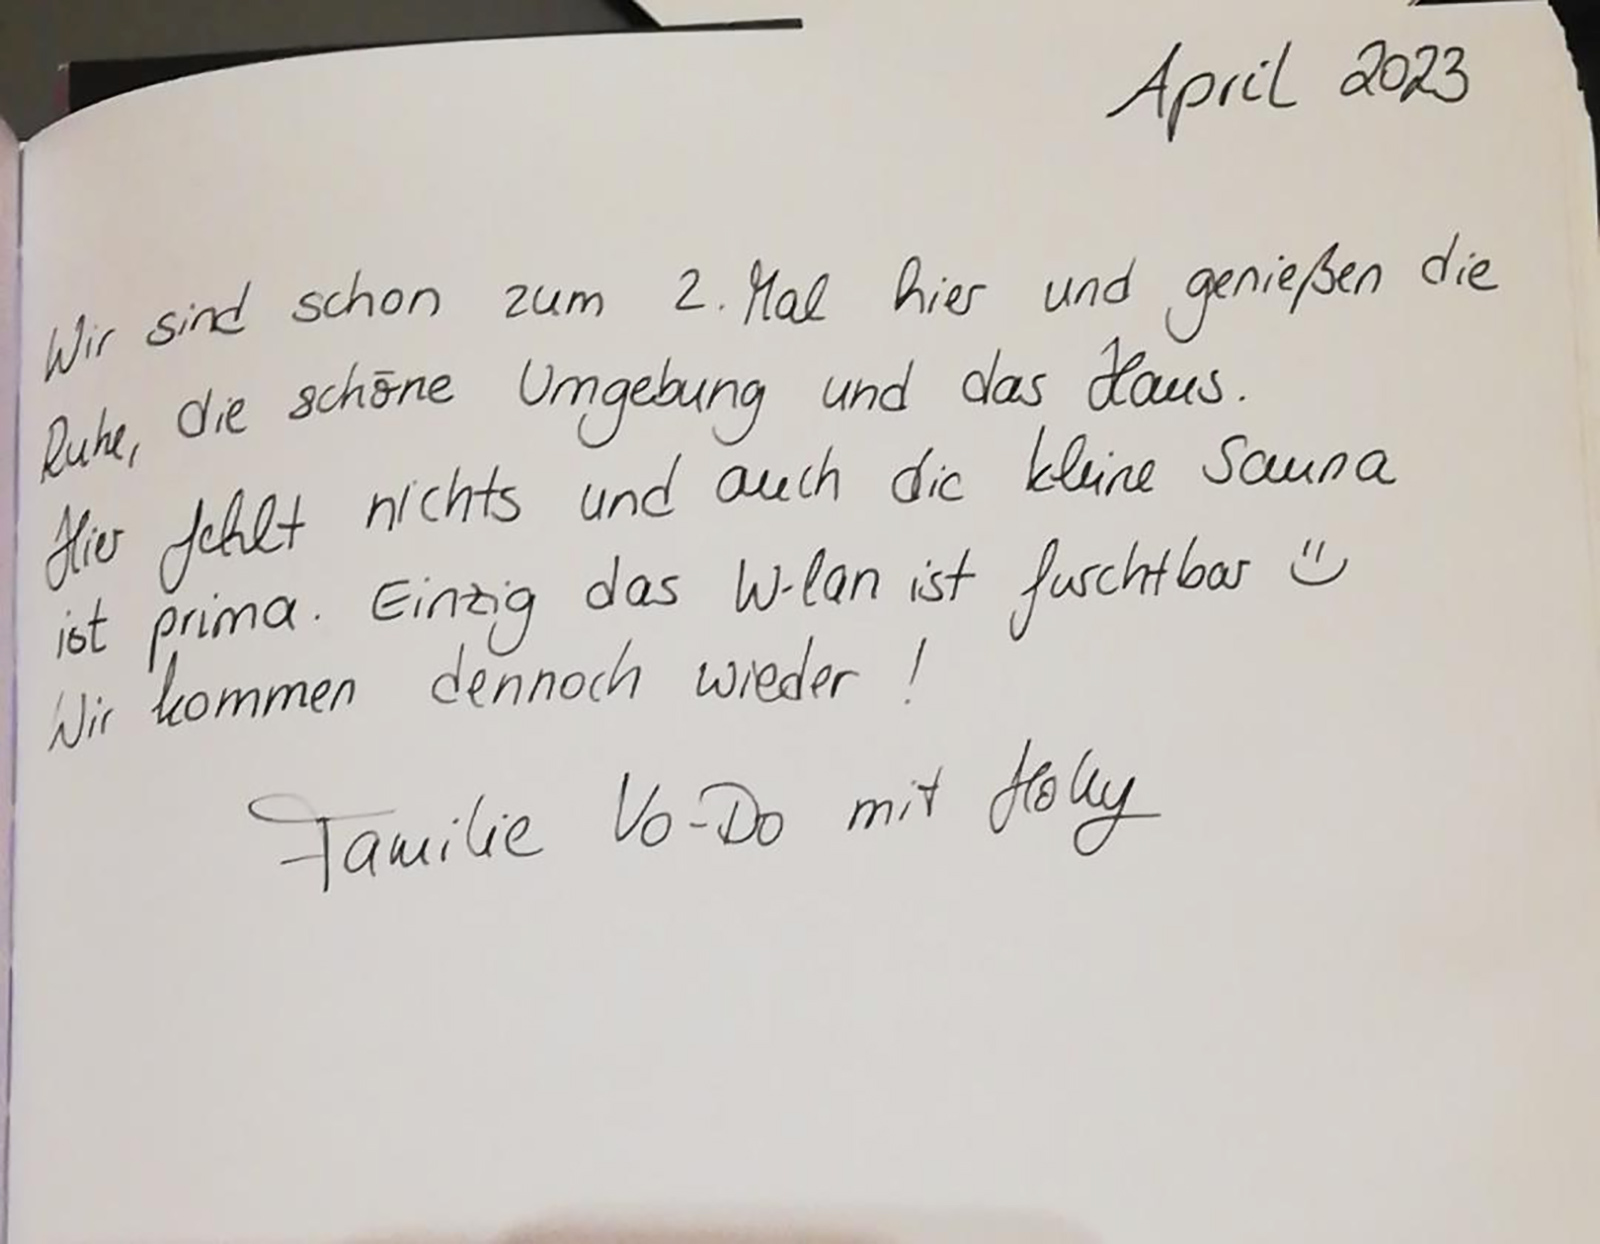 April 2023
Wir sind schon zum 2. Mal hier und genießen die
Ruhe, die schöne Umgebung und das Haus.
Hier fehlt nichts und auch die kleine Sauna
ist prima. Einzig das W-lan ist furchtbar
Wir kommen dennoch wieder!
Familie Vo-Do mit Holly